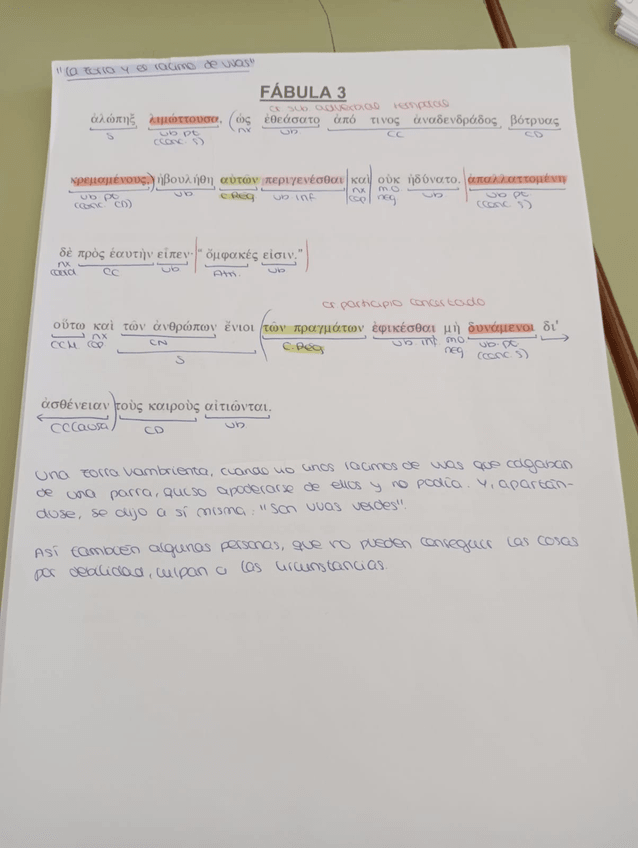 "La zorra y el racimo de uvas"
FÁBULA 3
or sub adverbial temporal
ἀλώπηξ λιμώττουσα, (ὡς ἐθεάσατο ἀπό τινος ἀναδενδράδος βότρυας
S vb pt nx vb CC CD
(conc. S)
κρεμαμένους,) ἠβουλήθη αὐτῶν περιγενέσθαι καὶ οὐκ ἠδύνατο. ἀπαλλαττομένη
vb pt vb C.Reg vb. inf nx mo vb vb pt
(conc CD) cop neg (conc. S)
δὲ πρὸς ἑαυτὴν εἶπεν· "ὄμφακές εἰσιν."
nx CC vb Atri. vb
or participio concertado
οὕτω καὶ τῶν ἀνθρώπων ἔνιοι (τῶν πραγμάτων ἐφικέσθαι μὴ δυνάμενοι δι'
CCM nx CN C.Reg vb. inf. mo vb. pt
cop S neg (conc. S)
ἀσθένειαν) τοὺς καιροὺς αἰτιῶνται.
CCCausa CD vb
Una zorra hambrienta, cuando vio unos racimos de uvas que colgaban
de una parra, quiso apoderarse de ellos y no podía. Y, apartán-
dose, se dijo a sí misma: "Son uvas verdes".
Así también algunas personas, que no pueden conseguir las cosas
por debilidad, culpan a las circunstancias.